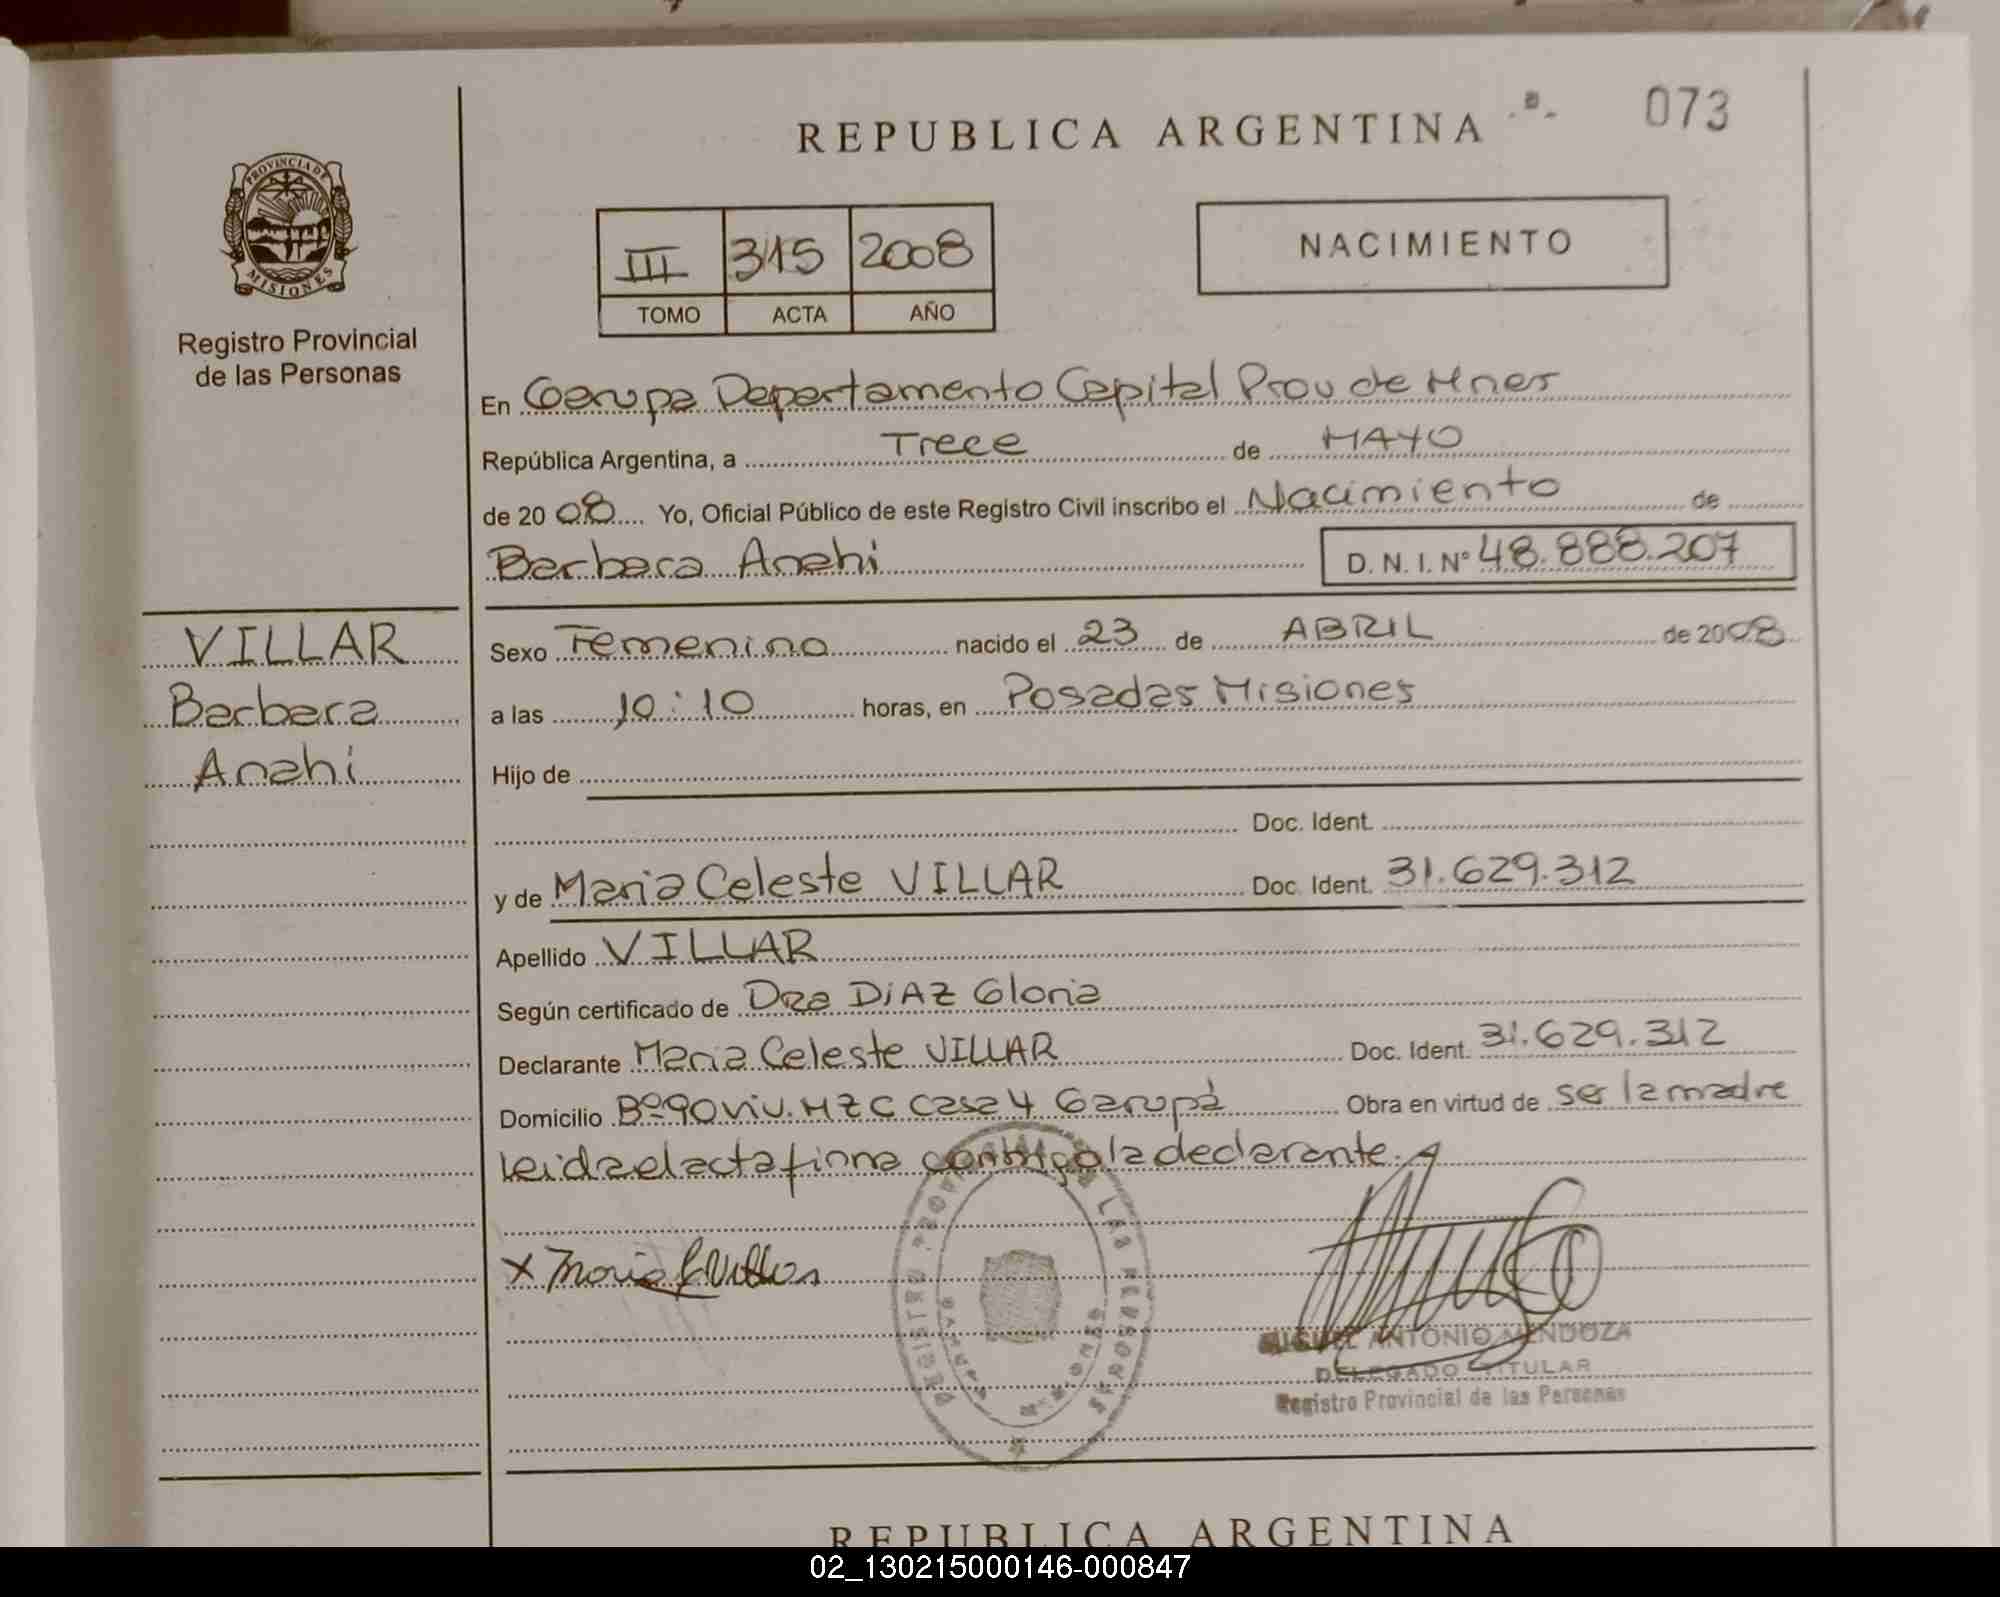 REPUBLICA ARGENTINA
073
PROVINCIA DE
MISIONES
Registro Provincial
de las Personas
III 315 2008
TOMO ACTA AÑO
NACIMIENTO
En Garupa Departamento Capital Prov de Mnes
República Argentina, a Trece de MAYO
de 2008 Yo, Oficial Público de este Registro Civil inscribo el Nacimiento de
Barbara Anahi D. N. I. Nº 48.888.207
VILLAR
Barbara
Anahi
Sexo Femenino nacido el 23 de ABRIL de 2008
a las 10:10 horas, en Posadas Misiones
Hijo de
Doc. Ident.
y de Maria Celeste VILLAR Doc. Ident. 31.629.312
Apellido VILLAR
Según certificado de Dra DIAZ Gloria
Declarante Maria Celeste VILLAR Doc. Ident. 31.629.312
Domicilio Bº 90 viv. MZ C Casa 4 Garupá Obra en virtud de ser la madre
leida el acta firma conmigo la declarante.
x Maria C Villar
REGISTRO PROVINCIAL DE LAS PERSONAS
GARUPA MISIONES
MIGUEL ANTONIO MENDOZA
DELEGADO TITULAR
Registro Provincial de las Personas
REPUBLICA ARGENTINA
02_130215000146-000847